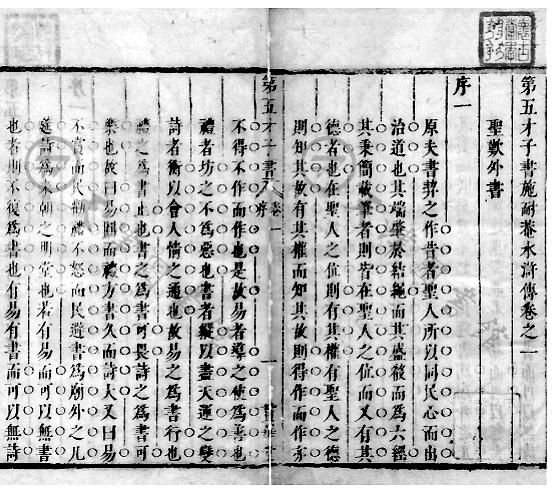 第五才子書施耐菴水滸傳卷之一
聖歎外書
序一
原夫書契之作昔者聖人所以同民心而出
治道也其端肇於結繩而其盛殽而為六經
其秉簡載筆者則皆在聖人之位而又有其
德者也在聖人之位則有其權有聖人之德
則知其故有其權而知其故則得作而作亦
第五才子書
序一
不得不作而作也是故易者導之使為善也
禮者坊之不為惡也書者縱以盡天運之變
詩者衡以會人情之通也故易之為書行也
禮之為書止也書之為書可畏詩之為書可
樂也故曰易圓而禮方書久而詩大又曰易
不賞而民勸禮不怒而民避書為廟外之几
筵詩為未朝之明堂也若有易而可以無書
也者則不復為書也有易有書而可以無詩